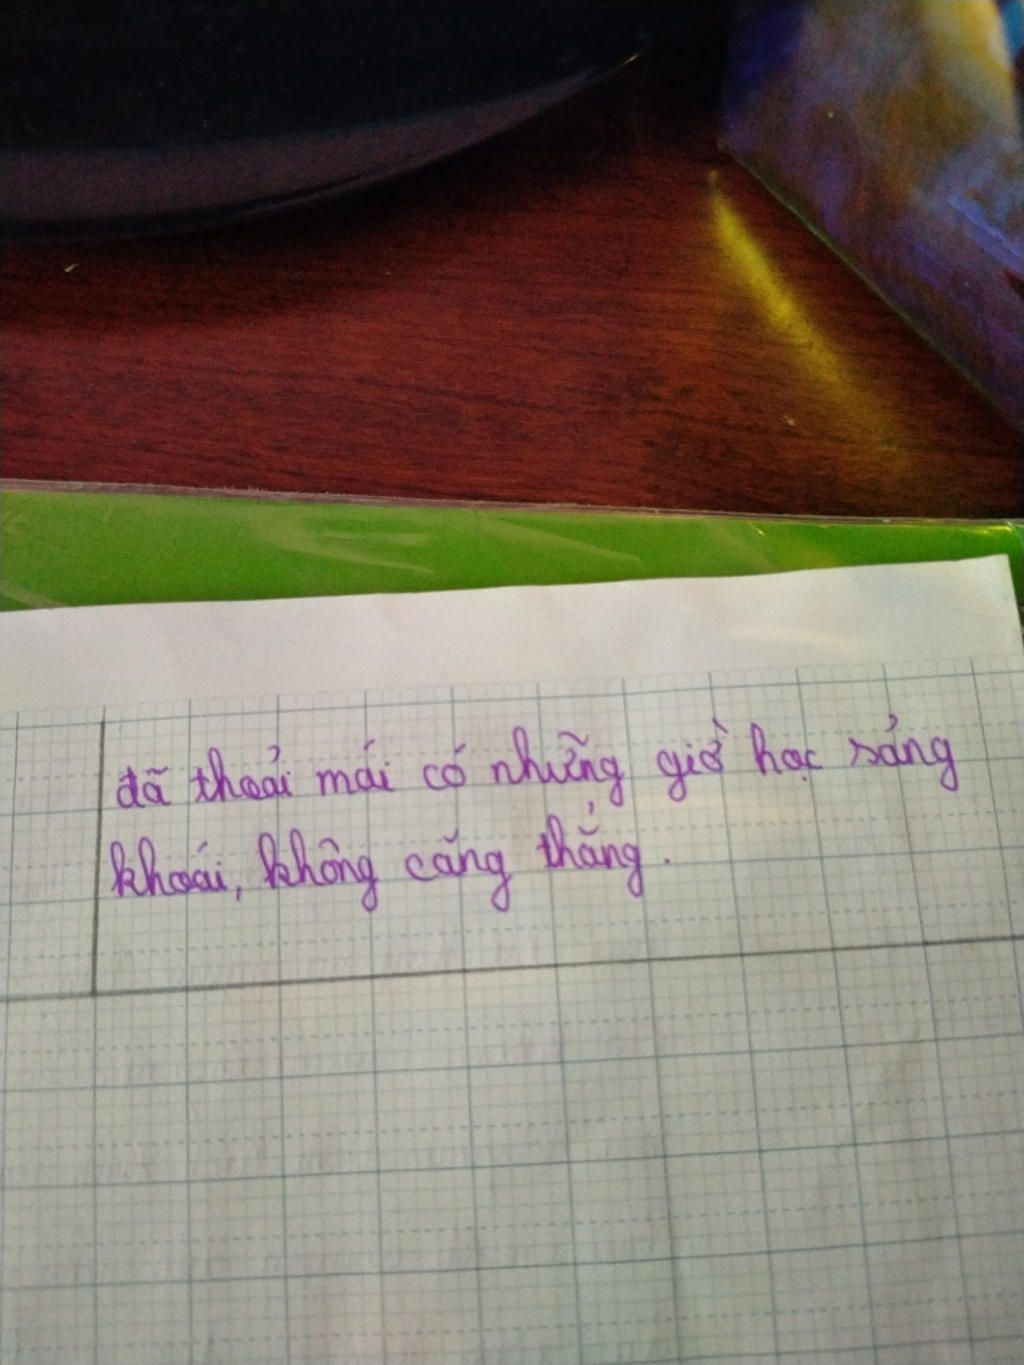 đã thoải mái có những giờ học sảng
khoái, không căng thẳng.